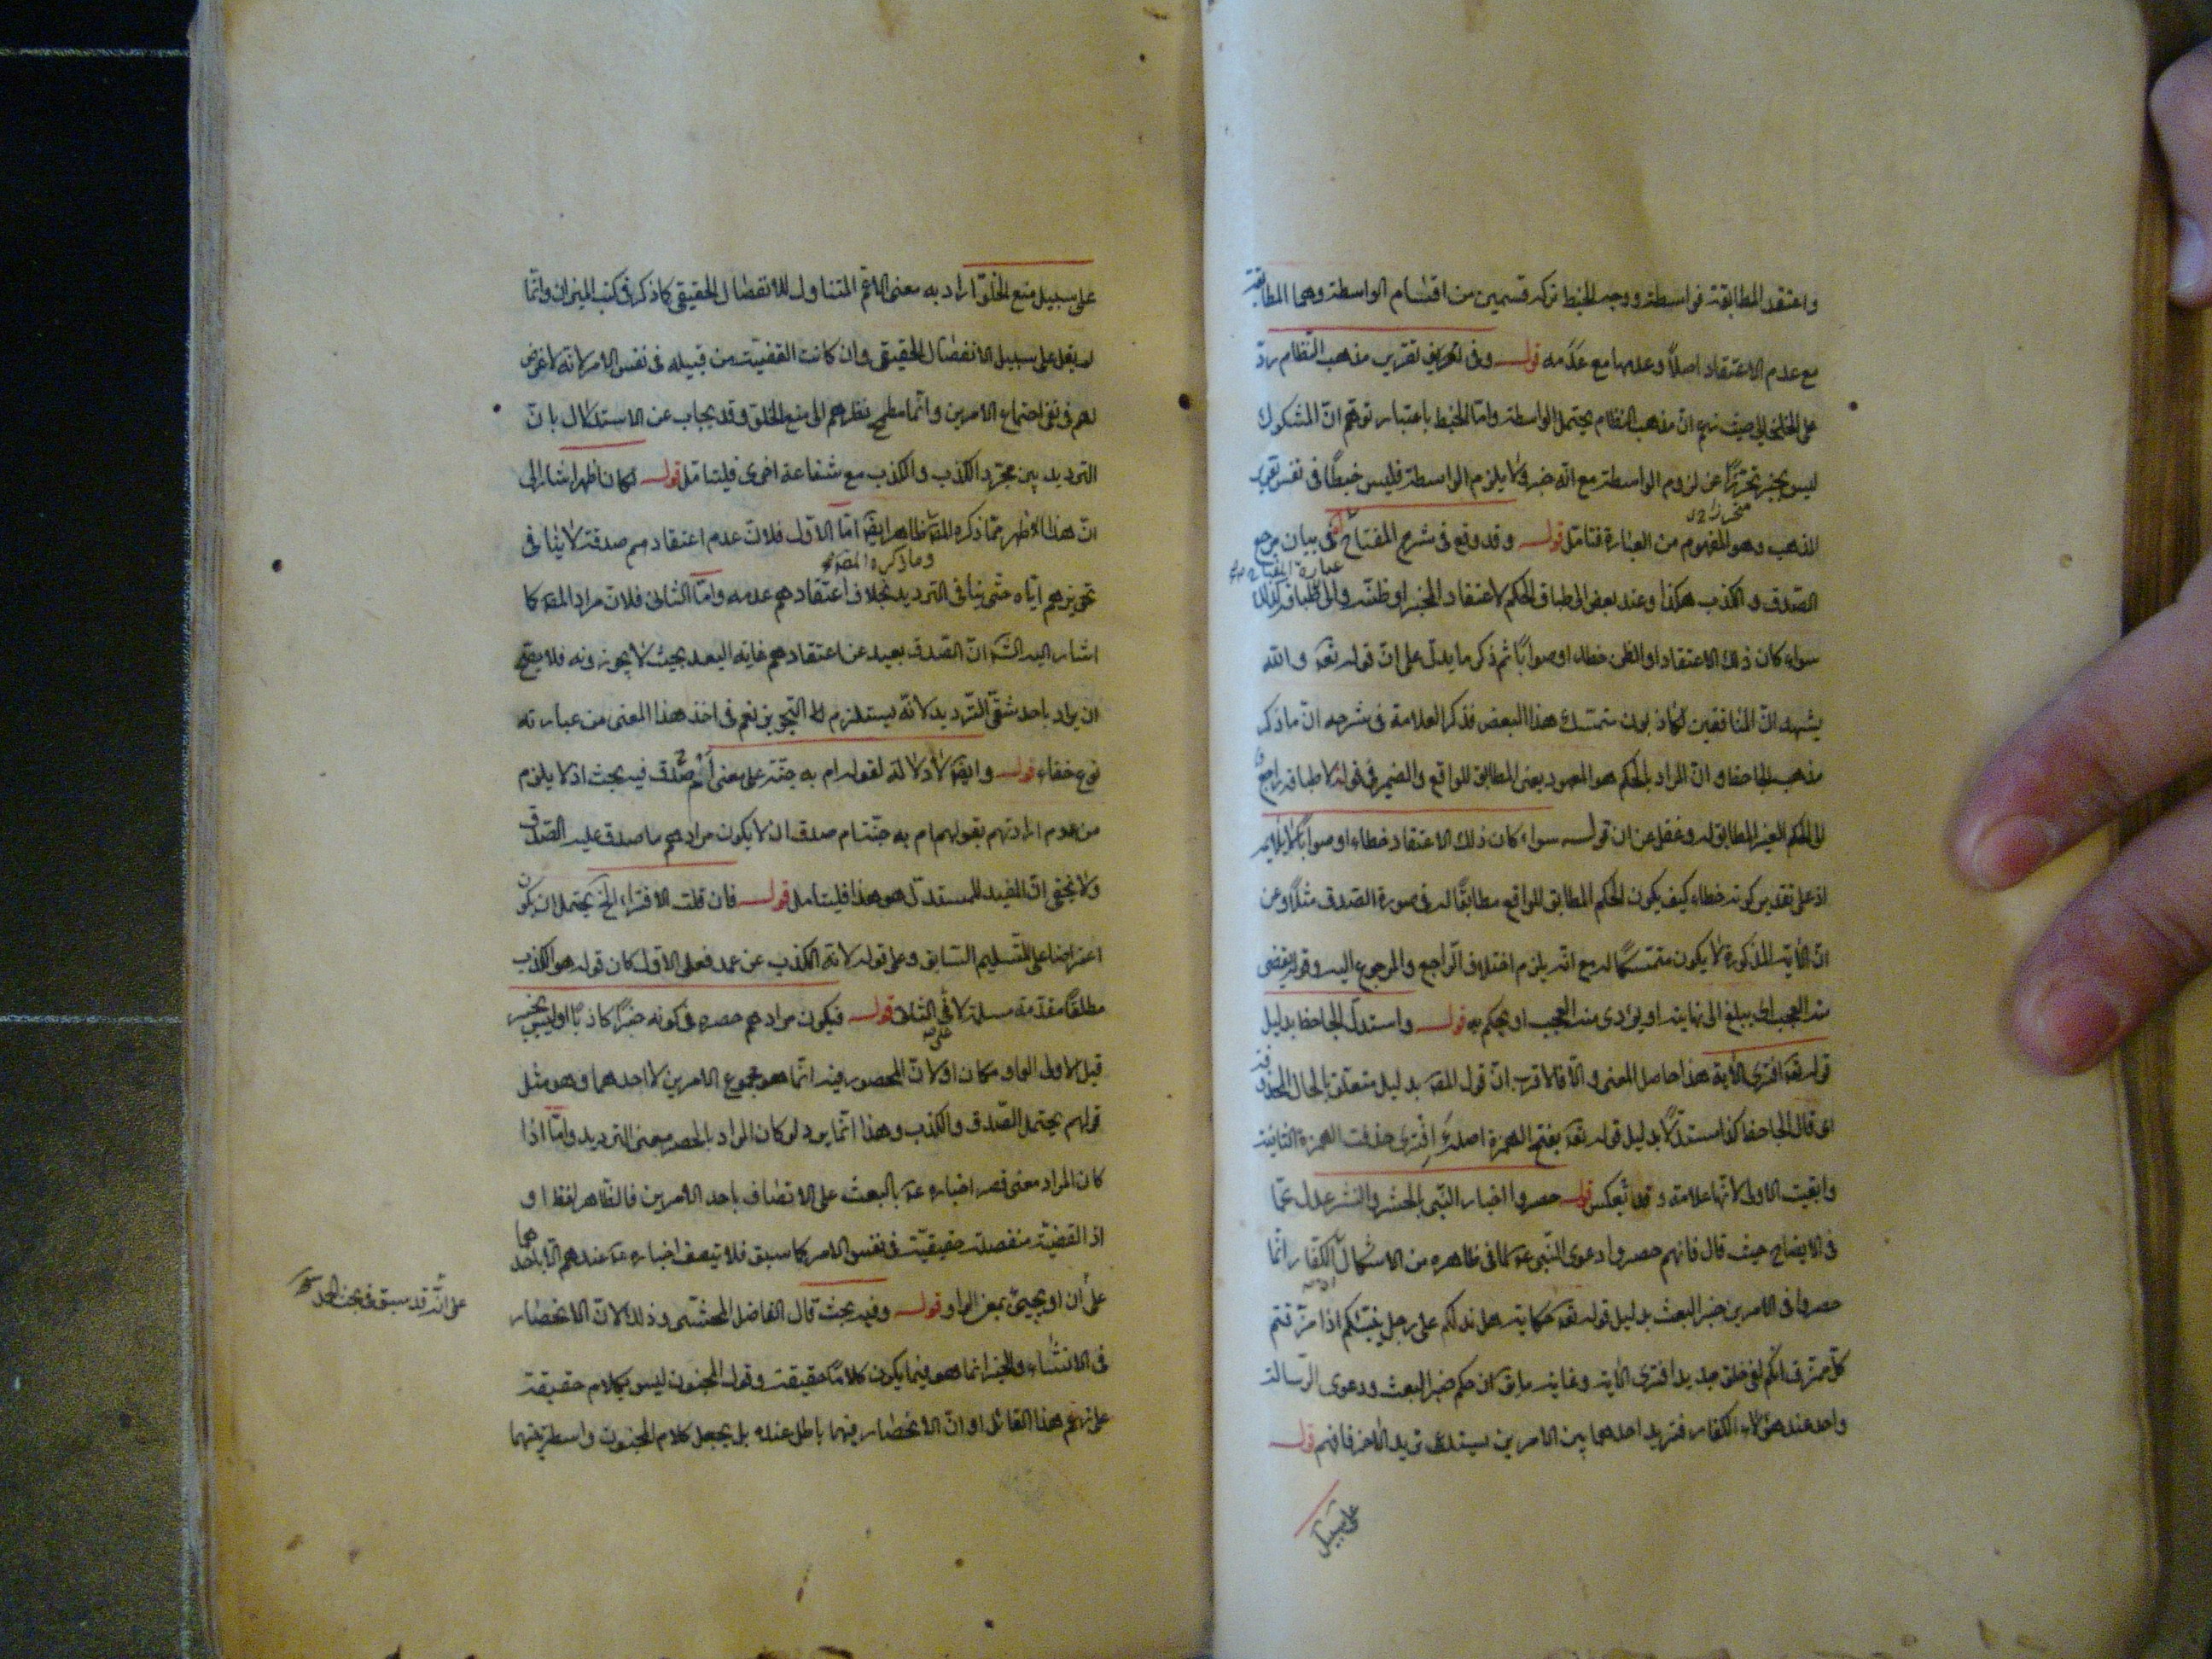 واعتقد المطابقة فواسطة ووجه الخبط تركه قسمين من اقسام الواسطة وهما المطابقة
مع عدم الاعتقاد اصلاً وعدمها مع عدمه قوله وفى تقرير مذهب النظام ردّ
على الخلخالى حيث زعم انّ مذهب النظام يحتمل الواسطة وامّا الخبط باعتبار توهّم انّ المشكوك
ليس بخبر تحرّزًا عن لزوم الواسطة مع انّه خبر ولا يلزم الواسطة فليس خبطًا فى نفس تقرير
المذهب وهو المفهوم من العبارة فتامّل قوله وقد وقع فى شرح المفتاح فى بيان مرجع
عبارة المفتاح
الصّدق والكذب هكذا وعند بعض الى طباق الحكم لاعتقاد المخبر او ظنّه والى لا طباقه كذلك
سواء كان ذلك الاعتقاد او الظن خطاء او صوابًا ثم ذكر ما يدلّ على انّ قوله تعه والله
يشهد انّ المنافقين لكاذبون متمسّك هذا البعض فذكر العلامة فى شرحه انّ ما ذكر
مذهب الجاحظ وانّ المراد بالحكم هو المعهود يعنى المطابق للواقع والضمير فى قوله لا طباقه راجع
الى الحكم الغير المطابق له وغفل عن ان قوله سواء كان ذلك الاعتقاد خطاء او صوابًا لا يلايمه
اذ على تقدير كونه خطاء كيف يكون الحكم المطابق للواقع مطابقًا له فى صورة الصّدق مثلًا وعن
انّ الآية المذكورة لا يكون متمسّكًا له مع انّه يلزم اختلاف الراجع والمرجوع اليه وقوله يقضى
منه العجب اى يبلغ الى نهايته او يؤدى منه العجب او يحكم به قوله واستدلّ الجاحظ بدليل
قوله تعه افترى الآية هذا حاصل المعنى والّا فالاقرب انّ قول المصه بدليل متعلّق بالحال المحذوفة
اى قال الجاحظ كذا مستدلًّا بدليل قوله تعه بفتح الهمزة اصله أإفترى حذفت الهمزة الثانية
وابقيت الاولى لانّها علامة وقد تعكس قوله حصروا اخبار النّبى بالحشر والنشر عدل عمّا
فى الايضاح حيث قال فانهم حصروا دعوى النّبى عه لما فى ظاهره من الاشكال لان الكفّار انّما
حصروا فى الامرين خبر البعث بدليل قوله تعه حكاية هل ندلّكم على رجل ينبّئكم اذا مزّقتم
كلّ ممزّق انّكم لفى خلق جديد افترى الآية وغاية ما يق ان حكم خبر البعث ودعوى الرّسالة
واحد عند هؤلاء الكفار فترديد احدهما بين الامرين يستدعى ترديد الآخر فافهم قوله
على سبيل
على سبيل منع الخلوّ اراد به معنى الاعمّ المتناول للانفصال الحقيقى كما ذكر فى كتب الميزان وانّما
لم يقل على سبيل الانفصال الحقيقى وان كانت القضيّة من قبيله فى نفس الامر لانّه لا غرض
لهم فى نفى اجتماع الامرين وانّما مطمح نظرهم الى منع الخلوّ وقد يجاب عن الاستدلال بانّ
الترديد بين مجرّد الكذب والكذب مع شفاعة اخرى فليتامّل قوله لكان اظهر اشار الى
انّ هذا اظهر ممّا ذكره المصه ظاهر ايضه امّا الاوّل فلانّ عدم اعتقادهم صدقه لا ينافى
وما ذكره المصه
تجويزهم ايّاه حتّى ينافى الترديد بخلاف اعتقادهم عدمه وامّا الثانى فلانّ مراد المصه كما
اشار اليه الشه انّ الصّدق بعيد عن اعتقادهم غاية البعد بحيث لا يجوزونه فلا يصح
ان يراد باحد شقّى التّرديد لانّه يستلزم التجويز نعم فى اخذ هذا المعنى من عبارته
نوع خفاء قوله وايضه لا دلالة لقوله ام به جنّة على معنى ام صدق فيه بحث اذ لا يلزم
من عدم ارادتهم بقولهم ام به جنّة ام صدق ان لا يكون مرادهم ما صدق عليه الصّدق
ولا يخفى انّ المفيد للمستدلّ هو هذا فليتامل قوله فان قلت الافتراء الخ يحتمل ان يكون
اعتراضا على التّسليم السّابق وعلى قوله لانه الكذب عن عمد فعلى الاوّل كان قوله هو الكذب
مطلقًا مقدّمة مسلّمة لا فى الثانى قوله فيكون مرادهم حصره فى كونه خبرًا كاذبًا او ليس بخبر
قيل الاولى الواو مكان او لانّ المحصور فيه انّما هو مجموع الامرين لا احدهما وهو مثل
قولهم يحتمل الصّدق والكذب وهذا انّما يرد لو كان المراد بالحصر معنى الترديد وامّا اذا
كان المراد معنى قصر اخباره عه بالبعث على الاتصاف باحد الامرين فالظاهر لفظ او
اذ القضيّة منفصلة حقيقيّة فى نفس الامر كما سبق فلا يتصف اخباره عه عندهم الّا باحدهما
على انّه قد سبق فى بحث الحد
على أن او يجيئ بمعنى الواو قوله وفيه بحث قال الفاضل المحشّى وذلك لانّ الانحصار
فى الانشاء والخبر انما هو فيما يكون كلامًا حقيقة وقول المجنون ليس بكلام حقيقة
على زعم هذا القائل او انّ الانحصار فيهما باطل عنده بل يجعل كلام المجنون واسطة بينهما